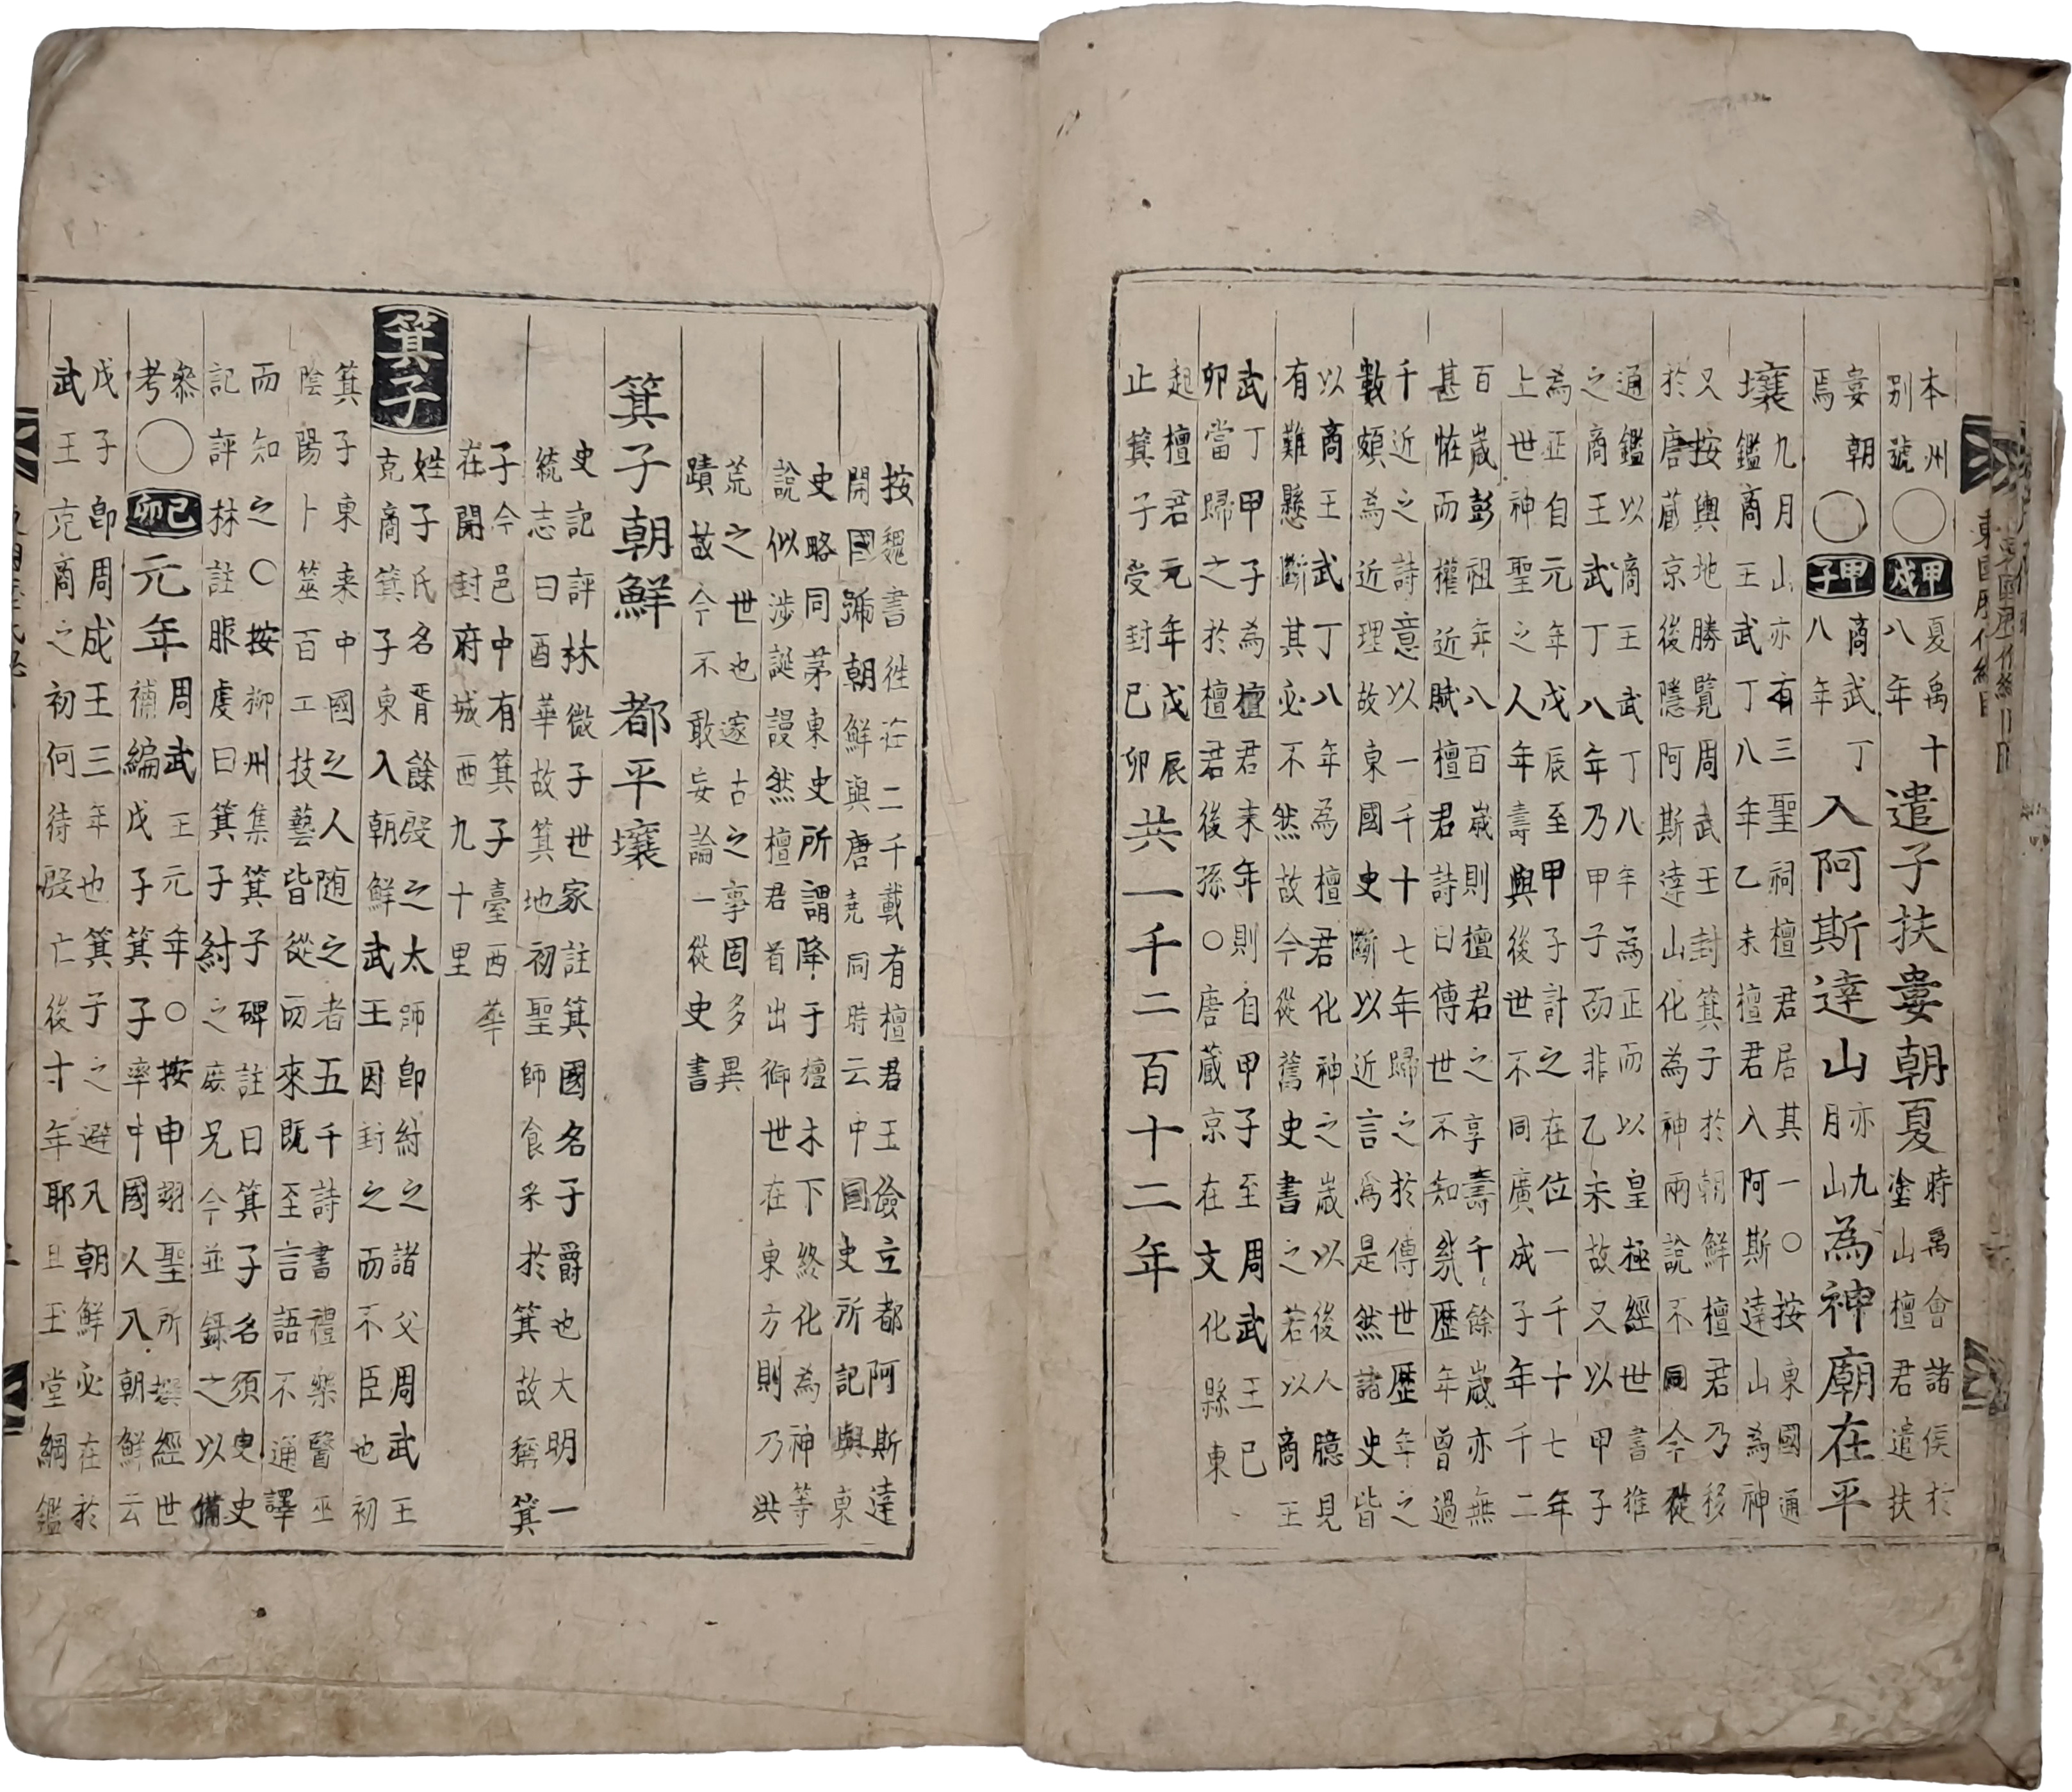 本州
別號
○
甲戌
夏禹十
八年
遣子扶婁朝夏
時禹會諸侯於
塗山檀君遣扶
婁朝
焉
○
甲子
商武丁
八年
入阿斯達山
亦九
月山
為神
廟在平
壤
九月山亦有三聖祠檀君居其一○按東國通
鑑商王武丁八年乙未檀君入阿斯達山為神
又按輿地勝覧周武王封箕子於朝鮮檀君乃移
於唐蔵京後隱阿斯達山化為神兩說不同今從
通鑑以商王武丁八年為正而以皇極經世書推
之商王武丁八年乃甲子而非乙未故又以甲子
為正自元年戊辰至甲子計之在位一千十七年
上世神聖之人年壽與後世不同廣成子年千二
百歲彭祖年八百歲則檀君之享壽千餘歲亦無
甚恠而權近賦檀君詩曰傳世不知幾歷年曾過
千近之詩意以一千十七年歸之於傳世歷年之
數頗為近理故東國史斷以近言爲是然諸史皆
以商王武丁八年為檀君化神之歲以後人臆見
有難懸斷其必不然故今從舊史書之若以商王
武丁甲子為檀君末年則自甲子至周武王己
卯當歸之於檀君後孫○唐蔵京在文化縣東
起檀君元年戊辰
止箕子受封己卯
共一千二百十二年
按魏書徃在二千載有檀君王儉立都阿斯達
開國號朝鮮與唐堯同時云中國史所記與東
史略同茅東史所謂降于檀木下終化為神等
說似涉誕謾然檀君首出御世在東方則乃洪
荒之世也邃古之事固多異
蹟故今不敢妄論一從史書
箕子朝鮮 都平壤
史記評林微子世家註箕國名子爵也大明一
統志曰酉華故箕地初聖師食采於箕故稱箕
子今邑中有箕子臺西華
在開封府城西九十里
箕子
姓子氏名胥餘殷之太師即紂之諸父周武王
克商箕子東入朝鮮武王因封之而不臣也初
箕子東来中國之人随之者五千詩書禮樂醫巫
陰陽卜筮百工技藝皆從而來既至言語不通譯
而知之○按柳州集箕子碑註曰箕子名須臾史
記評林註服虔曰箕子紂之庶兄今並錄之以備
叅
考
○
己卯
元年
周武王元年○按申翊聖所撰經世
補編戊子箕子率中國人入朝鮮云
戊子即周成王三年也箕子之避入朝鮮必在於
武王克商之初何待殷亡後十年耶且玉堂綱鑑